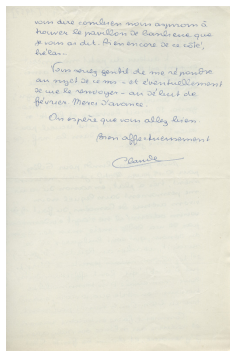 vous dire combien nous aspirons à
trouver le pavillon de banlieue que
je vous ai dit. Rien encore de ce côté,
hélas.
Vous seriez gentil de me répondre
au sujet de ce ms - et éventuellement
de me le renvoyer - au début de
février. Merci d'avance.
On espère que vous allez bien
Bien affectueusement
Claude